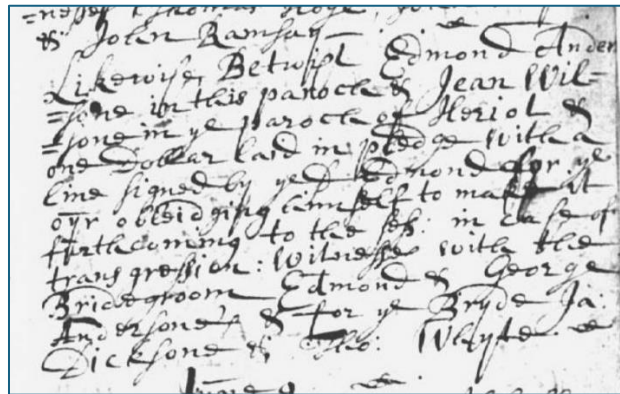 =nesses Thomas
& John Ramsay
Likewise, Betwixt Edmond Ander
=sone in this parioch & Jean Wil=
=sone in ye paroch of Heriot &
one Dollar laid in pledge with a
line signed by ye sd Edmond for ye
oyr obleidging himself to make it
furthcoming to the ses: in case of
transgression: Witnesses with the
Bridegroom Edmond & George
Andersone, & for ye Bryde Ja:
Dicksone & Tho: Whyte